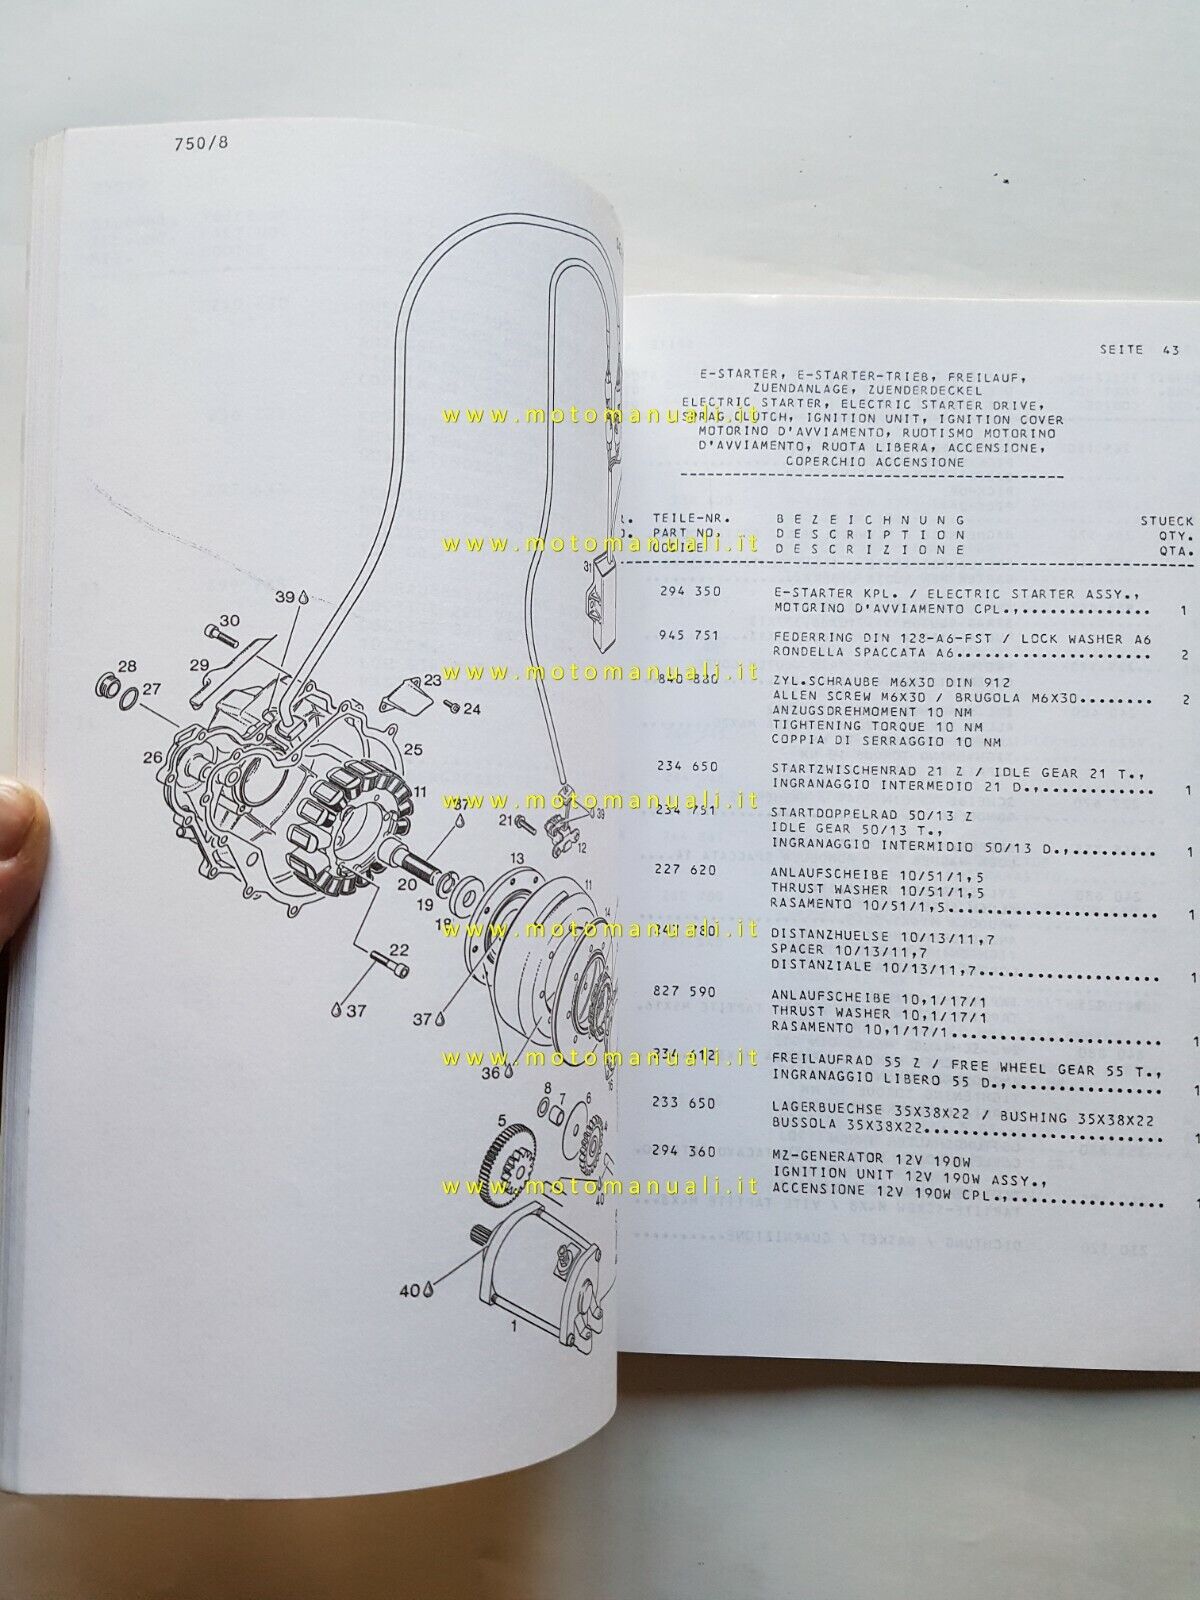 750/8
39
30
29
28
27
26
23
24
25
11
37
21
39
12
31
13
20
19
18
11
14
22
37
37
36
16
8
7
6
5
4
40
40
1
SEITE 43
E-STARTER, E-STARTER-TRIEB, FREILAUF,
ZUENDANLAGE, ZUENDERDECKEL
ELECTRIC STARTER, ELECTRIC STARTER DRIVE,
SPRAG CLUTCH, IGNITION UNIT, IGNITION COVER
MOTORINO D'AVVIAMENTO, RUOTISMO MOTORINO
D'AVVIAMENTO, RUOTA LIBERA, ACCENSIONE,
COPERCHIO ACCENSIONE
TEILE-NR. B E Z E I C H N U N G STUECK
PART NO. D E S C R I P T I O N QTY.
CODICE D E S C R I Z I O N E QTA.
294 350 E-STARTER KPL. / ELECTRIC STARTER ASSY.,
MOTORINO D'AVVIAMENTO CPL.,................ 1
945 751 FEDERRING DIN 128-A6-FST / LOCK WASHER A6
RONDELLA SPACCATA A6....................... 2
840 880 ZYL.SCHRAUBE M6X30 DIN 912
ALLEN SCREW M6X30 / BRUGOLA M6X30........ 2
ANZUGSDREHMOMENT 10 NM
TIGHTENING TORQUE 10 NM
COPPIA DI SERRAGGIO 10 NM
234 650 STARTZWISCHENRAD 21 Z / IDLE GEAR 21 T.,
INGRANAGGIO INTERMEDIO 21 D.,............. 1
234 751 STARTDOPPELRAD 50/13 Z
IDLE GEAR 50/13 T.,
INGRANAGGIO INTERMIDIO 50/13 D.,.......... 1
227 620 ANLAUFSCHEIBE 10/51/1,5
THRUST WASHER 10/51/1,5
RASAMENTO 10/51/1,5........................ 1
DISTANZHUELSE 10/13/11,7
SPACER 10/13/11,7
DISTANZIALE 10/13/11,7..................... 1
827 590 ANLAUFSCHEIBE 10,1/17/1
THRUST WASHER 10,1/17/1
RASAMENTO 10,1/17/1........................ 1
234 612 FREILAUFRAD 55 Z / FREE WHEEL GEAR 55 T.,
INGRANAGGIO LIBERO 55 D.,................. 1
233 650 LAGERBUECHSE 35X38X22 / BUSHING 35X38X22
BUSSOLA 35X38X22........................... 1
294 360 MZ-GENERATOR 12V 190W
IGNITION UNIT 12V 190W ASSY.,
ACCENSIONE 12V 190W CPL.,................. 1
www.motomanuali.it
www.motomanuali.it
www.motomanuali.it
www.motomanuali.it
www.motomanuali.it
www.motomanuali.it
www.motomanuali.it